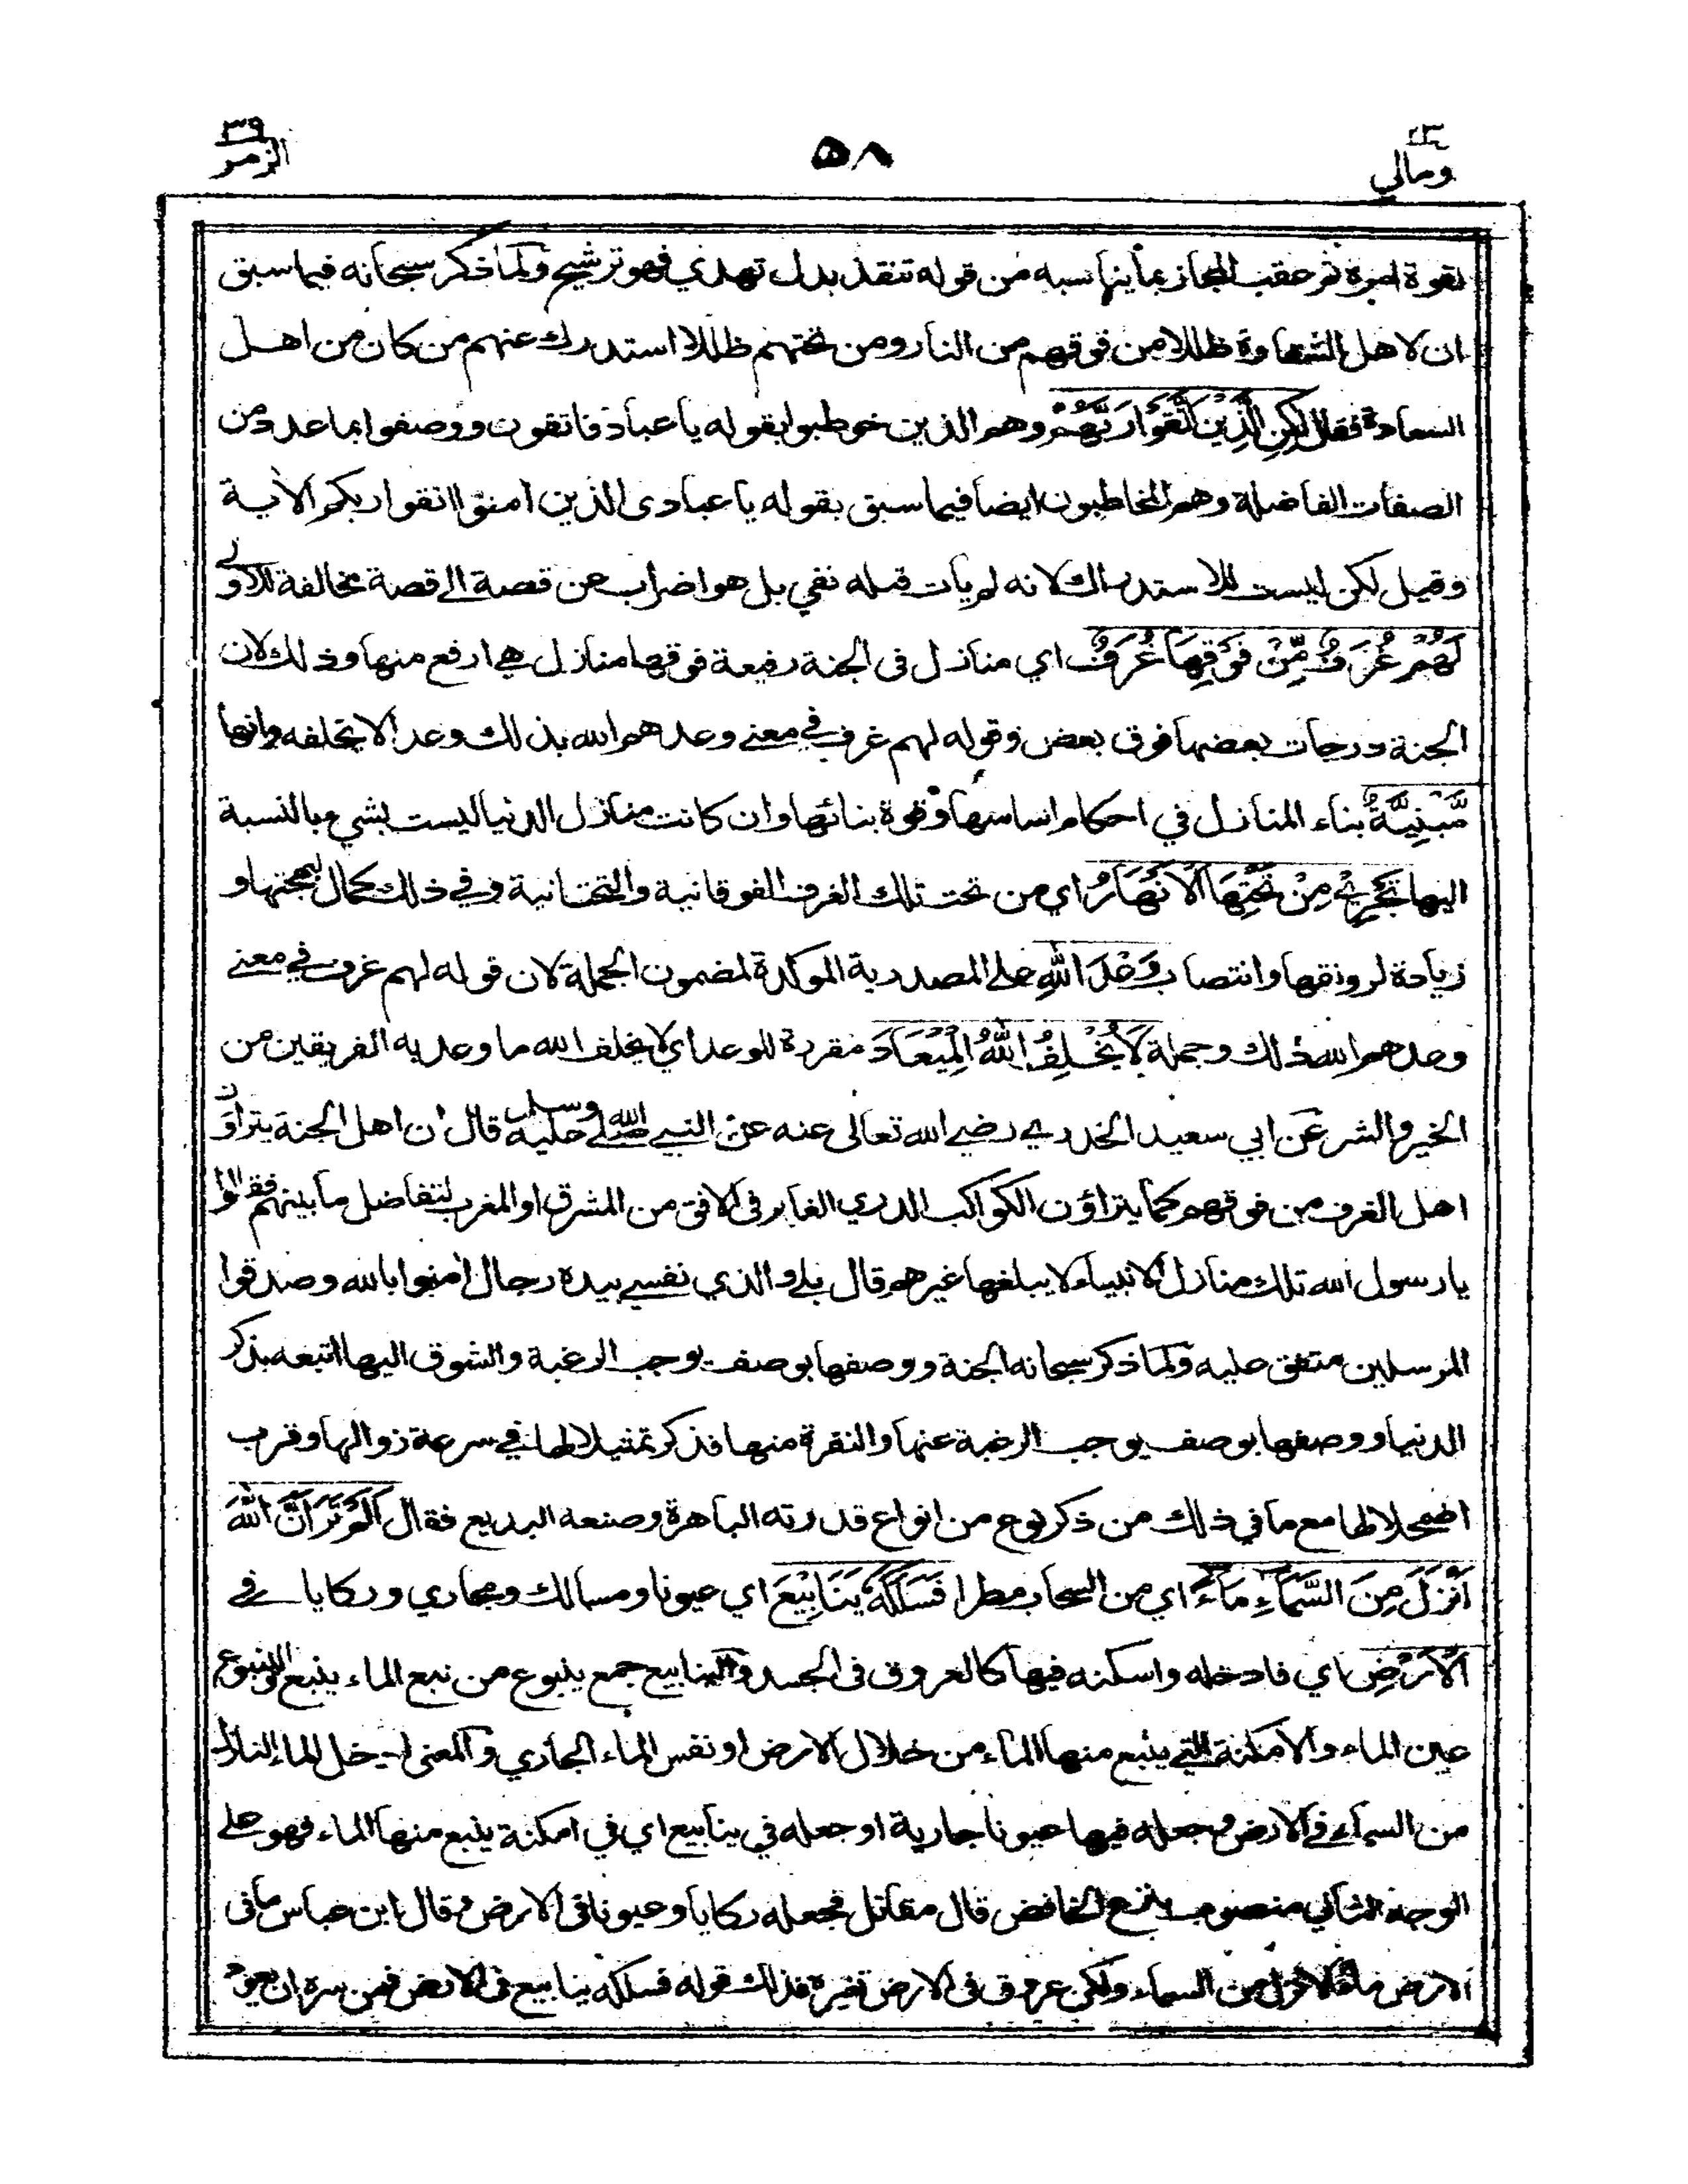 ٢٣
ومالي
٥٨
٣٩
الزمر
لقوة امره ثم عقب المجاز بما يناسبه من قوله تنقذ بدل تهدي فهو ترشيح ولما ذكر سبحانه فيما سبق
ان لاهل الشقاوة ظللا من فوقهم من النار ومن تحتهم ظللا استدرك عنهم من كان من اهل
السعادة فقال لٰكِنِ الَّذِيْنَ اتَّقَوْا رَبَّهُمْ وهم الذين خوطبوا بقوله يا عباد فاتقون ووصفوا بما عدد من
الصفات الفاضلة وهم المخاطبون ايضا فيما سبق بقوله يا عبادى الذين امنوا اتقوا ربكم الاية
وقيل لكن ليست للاستدراك لانه لم يأت قبله نفي بل هو اضراب عن قصة الى قصة مخالفة للاولى
لَهُمْ غُرَفٌ مِّنْ فَوْقِهَا غُرَفٌ اي منازل فى الجنة رفيعة فوقها منازل هي ارفع منها وذلك لان
الجنة درجات بعضها فوق بعض وقوله لهم غرف في معنى وعدهم الله بذلك وعدا لا يخلفه وانها
مَّبْنِيَّةٌ بناء المنازل في احكام اساسها وقوة بنائها وان كانت منازل الدنيا ليست بشيء بالنسبة
اليها تَجْرِيْ مِنْ تَحْتِهَا الْاَنْهَارُ اي من تحت تلك الغرف الفوقانية والتحتانية وفي ذلك كمال لبهجتها و
زيادة لرونقها وانتصاب وَعْدَ اللّٰهِ على المصدرية الموكدة لمضمون الجملة لان قوله لهم غرف في معنى
وعدهم الله ذلك وجملة لَا يُخْلِفُ اللّٰهُ الْمِيْعَادَ مقررة للوعد اي لا يخلف الله ما وعد به الفريقين من
الخير والشر عن ابي سعيد الخدري رضي الله تعالى عنه عن النبي صلى الله عليه وسلم قال ان اهل الجنة يتراؤن
اهل الغرف من فوقهم كما يتراؤن الكواكب الدري الغابر فى الافق من المشرق او المغرب لتفاضل ما بينهم فقالوا
يا رسول الله تلك منازل الانبياء لا يبلغها غيرهم قال بلى والذي نفسي بيده رجال امنوا بالله وصدقوا
المرسلين متفق عليه ولما ذكر سبحانه الجنة ووصفها بوصف يوجب الرغبة والشوق اليها اتبعه بذكر
الدنيا ووصفها بوصف يوجب الرغبة عنها والنفرة منها فذكر تمثيلا لها في سرعة زوالها وقرب
اضمحلالها مع ما في ذلك من ذكر نوع من انواع قدرته الباهرة وصنعه البديع فقال اَلَمْ تَرَ اَنَّ اللّٰهَ
اَنْزَلَ مِنَ السَّمَآءِ مَآءً اي من السحاب مطرا فَسَلَكَهٗ يَنَابِيْعَ اي عيونا ومسالك ومجاري وركايا في
الْاَرْضِ اي فادخله واسكنه فيها كالعروق فى الجسد والينابيع جمع ينبوع من نبع الماء ينبع والينبوع
عين الماء والامكنة التي ينبع منها الماء من خلال الارض او نفس الماء الجاري والمعنى ادخل الماء النازل
من السماء في الارض وجعله فيها عيونا جارية او جعله في ينابيع اي في امكنة ينبع منها الماء فهو على
الوجه الثاني منصوب بنزع الخافض قال مقاتل فجعله ركايا وعيونا فى الارض وقال ابن عباس ما فى
الارض ماء الا نزل من السماء ولكن عروق فى الارض تغيره فذلك قوله فسلكه ينابيع فى الارض فمن سره ان يعود